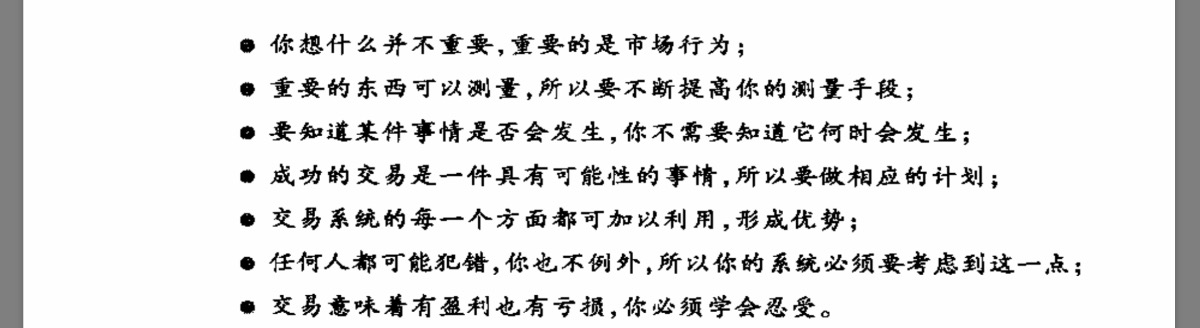 ● 你想什么并不重要,重要的是市场行为;
● 重要的东西可以测量,所以要不断提高你的测量手段;
● 要知道某件事情是否会发生,你不需要知道它何时会发生;
● 成功的交易是一件具有可能性的事情,所以要做相应的计划;
● 交易系统的每一个方面都可加以利用,形成优势;
● 任何人都可能犯错,你也不例外,所以你的系统必须要考虑到这一点;
● 交易意味着有盈利也有亏损,你必须学会忍受。